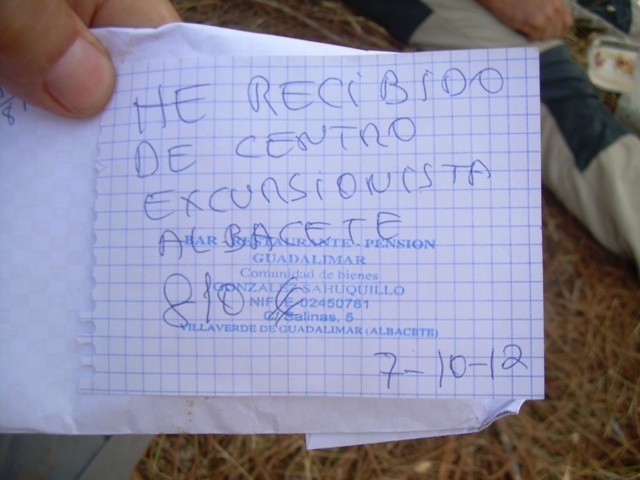 HE RECIBIDO
DE CENTRO
EXCURSIONISTA
ALBACETE
BAR - RESTAURANTE - PENSION
GUADALIMAR
Comunidad de bienes
GONZALEZ SAHUQUILLO
NIF E-02450781
C/ Salinas, 5
VILLAVERDE DE GUADALIMAR (ALBACETE)
810 €
7-10-12